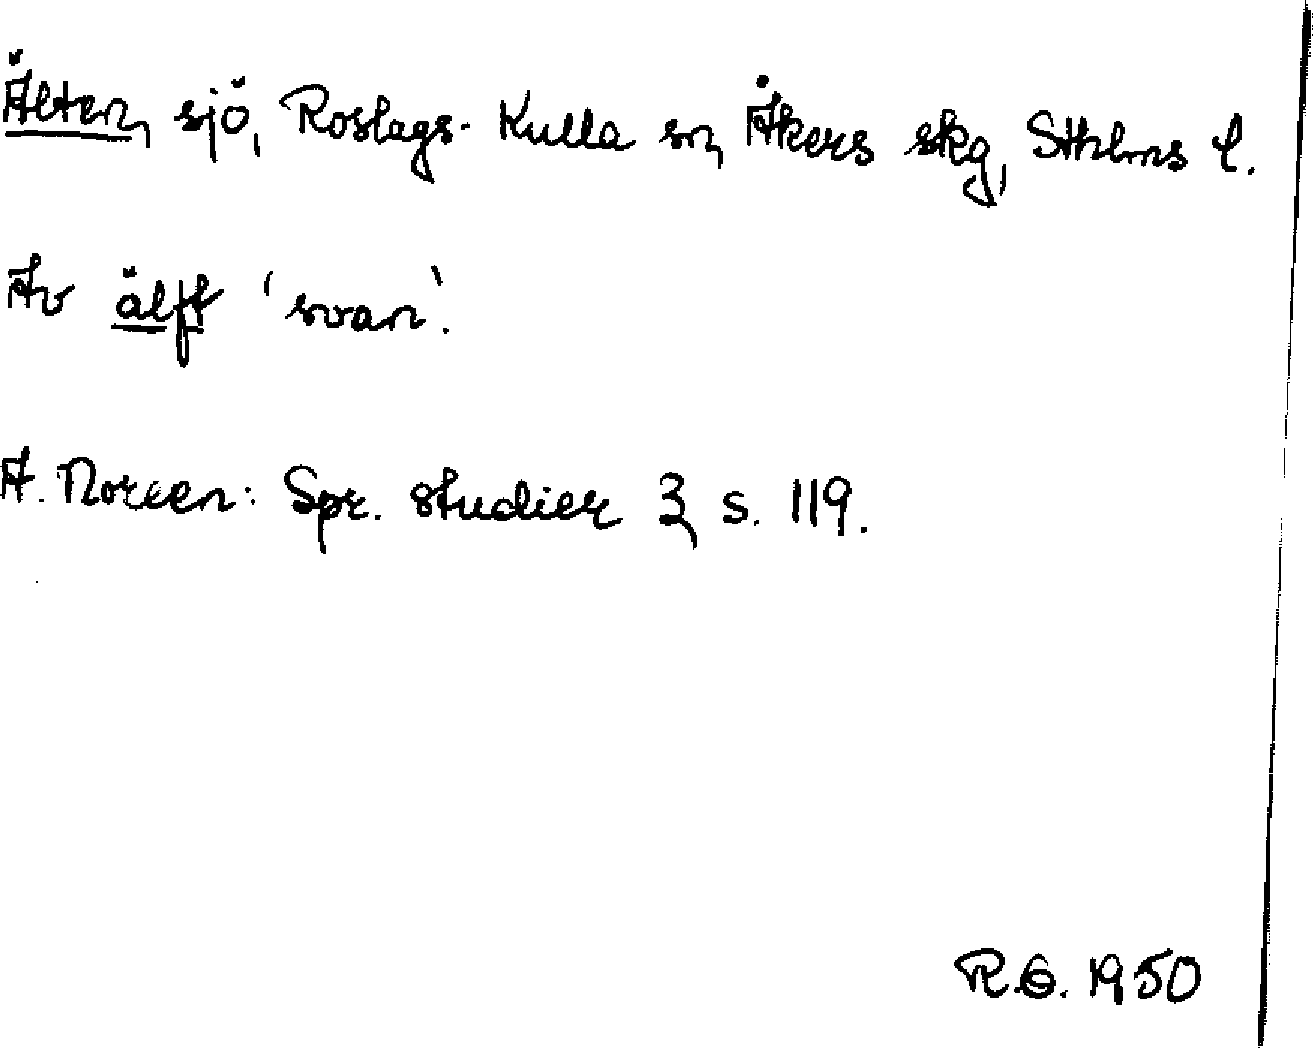 Älten, sjö, Roslags-Kulla sn, Åkers skg, Sthlms l.
Av älft 'svan'.
A. Noreen: Spr. studier 3, s. 119.
R.G. 1950